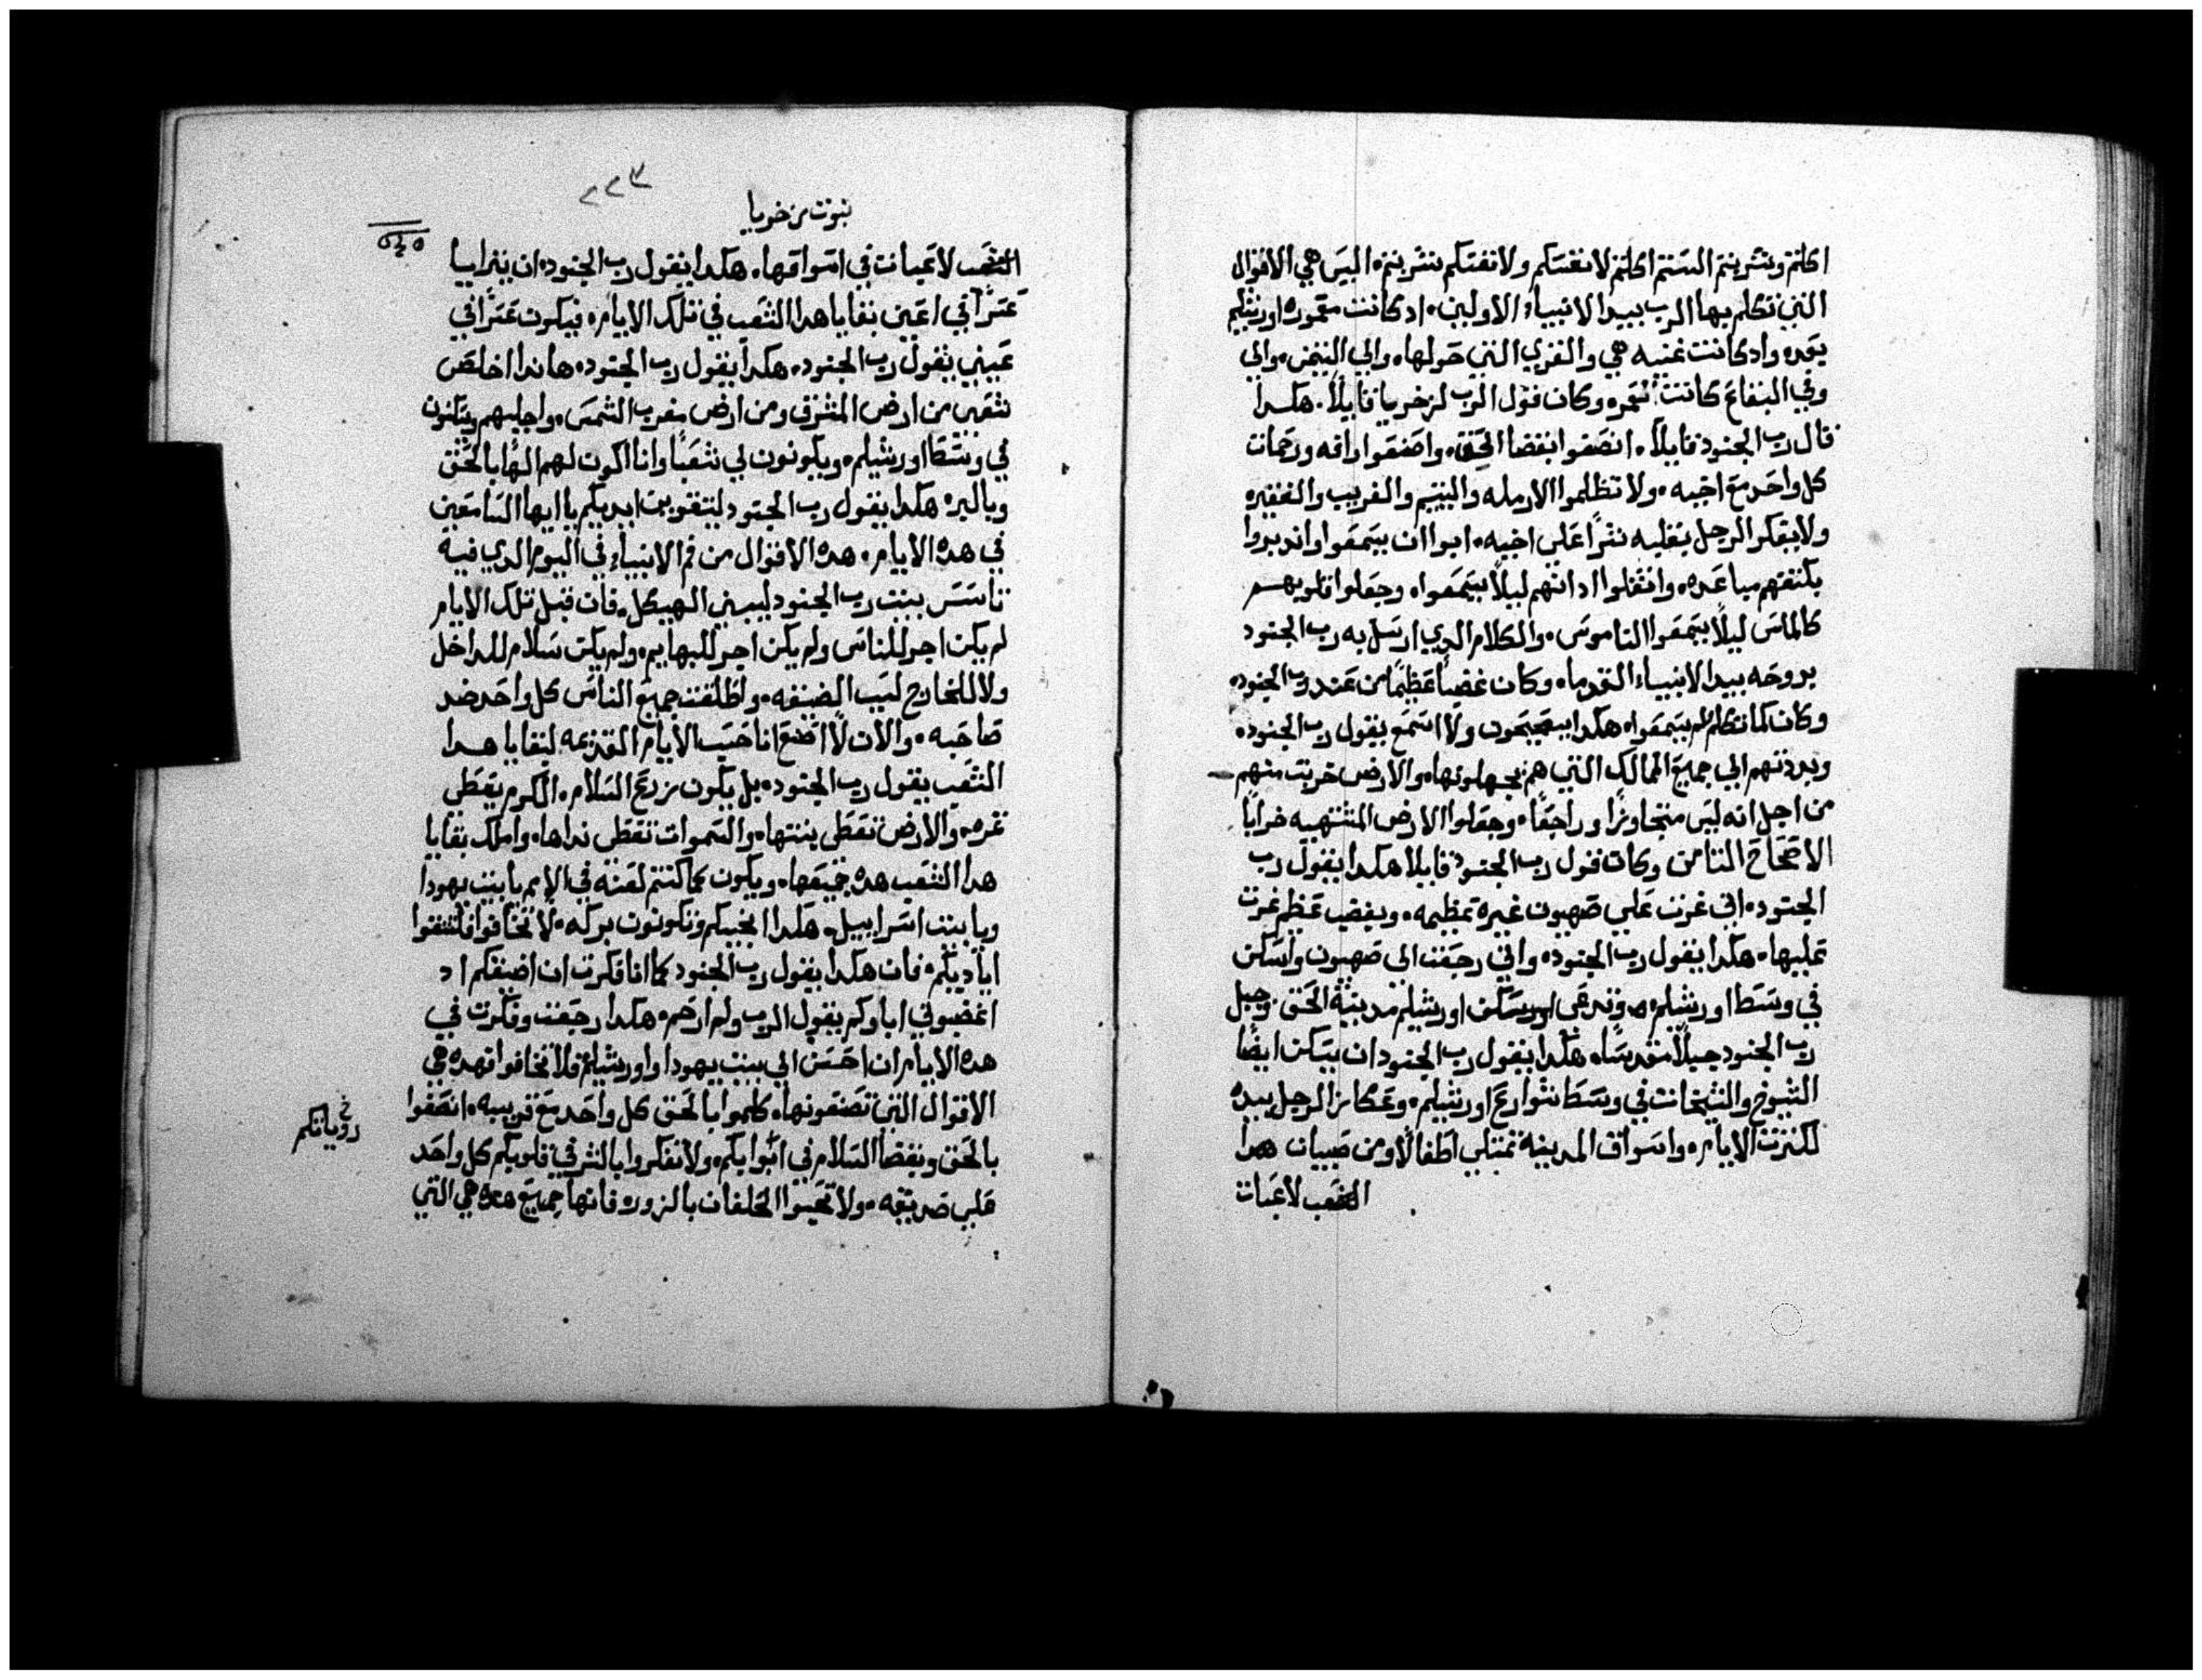 اكلتم وشربتم الستم اكلتم لانفسكم ولانفسكم شربتم. اليس هي الاقوال
التي تكلم بها الرب بيد الانبياء الاولين. اد كانت معموره اورشليم
بعد. واد كانت غنيه هي والقري التي حولها. والي التيمن. والي
وفي البقاع كانت تعمر. وكان قول الرب لزخريا قايلاً. هكدا
قال رب الجنود قايلاً. انصفوا بقضا الحق. واصنعوا رافه ورحمات
كل واحد مع اخيه. ولا تظلموا الارمله واليتيم والغريب والفقير.
ولا يفكر الرجل بقلبه شراً علي اخيه. ابوا ان يسمعوا واندبروا
بكتفهم مباعده. واثقلوا ادانهم ليلاً يسمعوا. وجعلوا قلوبهم
كالماس ليلاً يسمعوا الناموس. والكلام الدي ارسل به رب الجنود
بروحه بيد الانبياء القدما. وكان غضباً عظيماً من عند رب الجنود.
وكان كما تكلم لم يسمعوا. هكدا يصيحون ولا اسمع يقول رب الجنود.
وبددتهم الي جميع الممالك التي هم يجهلونها. والارض خربت منهم
من اجل انه ليس متجاوزاً وراجعاً. وجعلوا الارض المشتهيه خراباً
الاصحاح الثامن وكان قول رب الجنود قايلا هكدا يقول رب
الجنود. اني غرت علي صهيون غيره عظيمه. وبغضب عظم غرت
عليها. هكدا يقول رب الجنود. واني رجعت الي صهيون واسكن
في وسط اورشليم. وتدعي اورشليم مدينة الحق. وجبل
رب الجنود جبلاً مقدساً. هكدا يقول رب الجنود ان يسكن ايضًا
الشيوخ والشيخات في وسط شوارع اورشليم. وعكاز الرجل بيده
لكثرت الايام. واسواق المدينة تمتلي اطفالاً ومن صبيان هدا
الشعب لاعبات
نبوت زخريا
٢٢٣
الشعب لاعبات في اسواقها. هكدا يقول رب الجنود. ان يترايا
عسًرا في اعين بقايا هدا الشعب في تلك الايام. فيكون عسًرا في
عيني يقول رب الجنود. هكدا يقول رب الجنود. هاندا اخلص
شعبي من ارض المشرق ومن ارض مغرب الشمس. واجلبهم ويسكنون
في وسط اورشليم. ويكونون لي شعباً وانا اكون لهم الهًا بالحق
وبالبر. هكدا يقول رب الجنود لتتقوين ايديكم يا ايها السامعين
في هده الايام. هده الاقوال من فم الانبياء في اليوم الدي فيه
تاسس بيت رب الجنود ليبني الهيكل. فان قبل تلك الايام
لم يكن اجر للناس ولم يكن اجر للبهايم. ولم يكن سلام للداخل
ولا للخارج لسبب الضيقه. واطلقت جميع الناس كل واحد ضد
صاحبه. والان لا اصنع انا حسب الايام القديمه لبقايا هدا
الشعب يقول رب الجنود. بل يكون زرع السلام. الكرم يعطي
ثمره. والارض تعطي بنتها. والسموات تعطي نداها. واملك بقايا
هدا الشعب هده جميعها. ويكون كما كنتم لعنه في الامم يا بيت يهودا
ويا بيت اسراييل. هكدا انجيكم وتكونون بركه. لا تخافوا فلتتقوا
اياديكم. فان هكدا يقول رب الجنود كما انا فكرت ان اضيقكم اد
اغضبوني اباوكم يقول الرب ولم ارحم. هكدا رجعت وفكرت في
هده الايام ان احسن الي بيت يهودا واورشليم فلا تخافوا فهده هي
الاقوال التي تصنعونها. كلموا بالحق كل واحد مع قريبه. انصفوا
بالحق وبقضا السلام في ابوابكم. ولا تفكروا بالشر في قلوبكم كل واحد
علي صديقه. ولا تحبوا الحلفان بالزور. فانها جميع هده هي التي